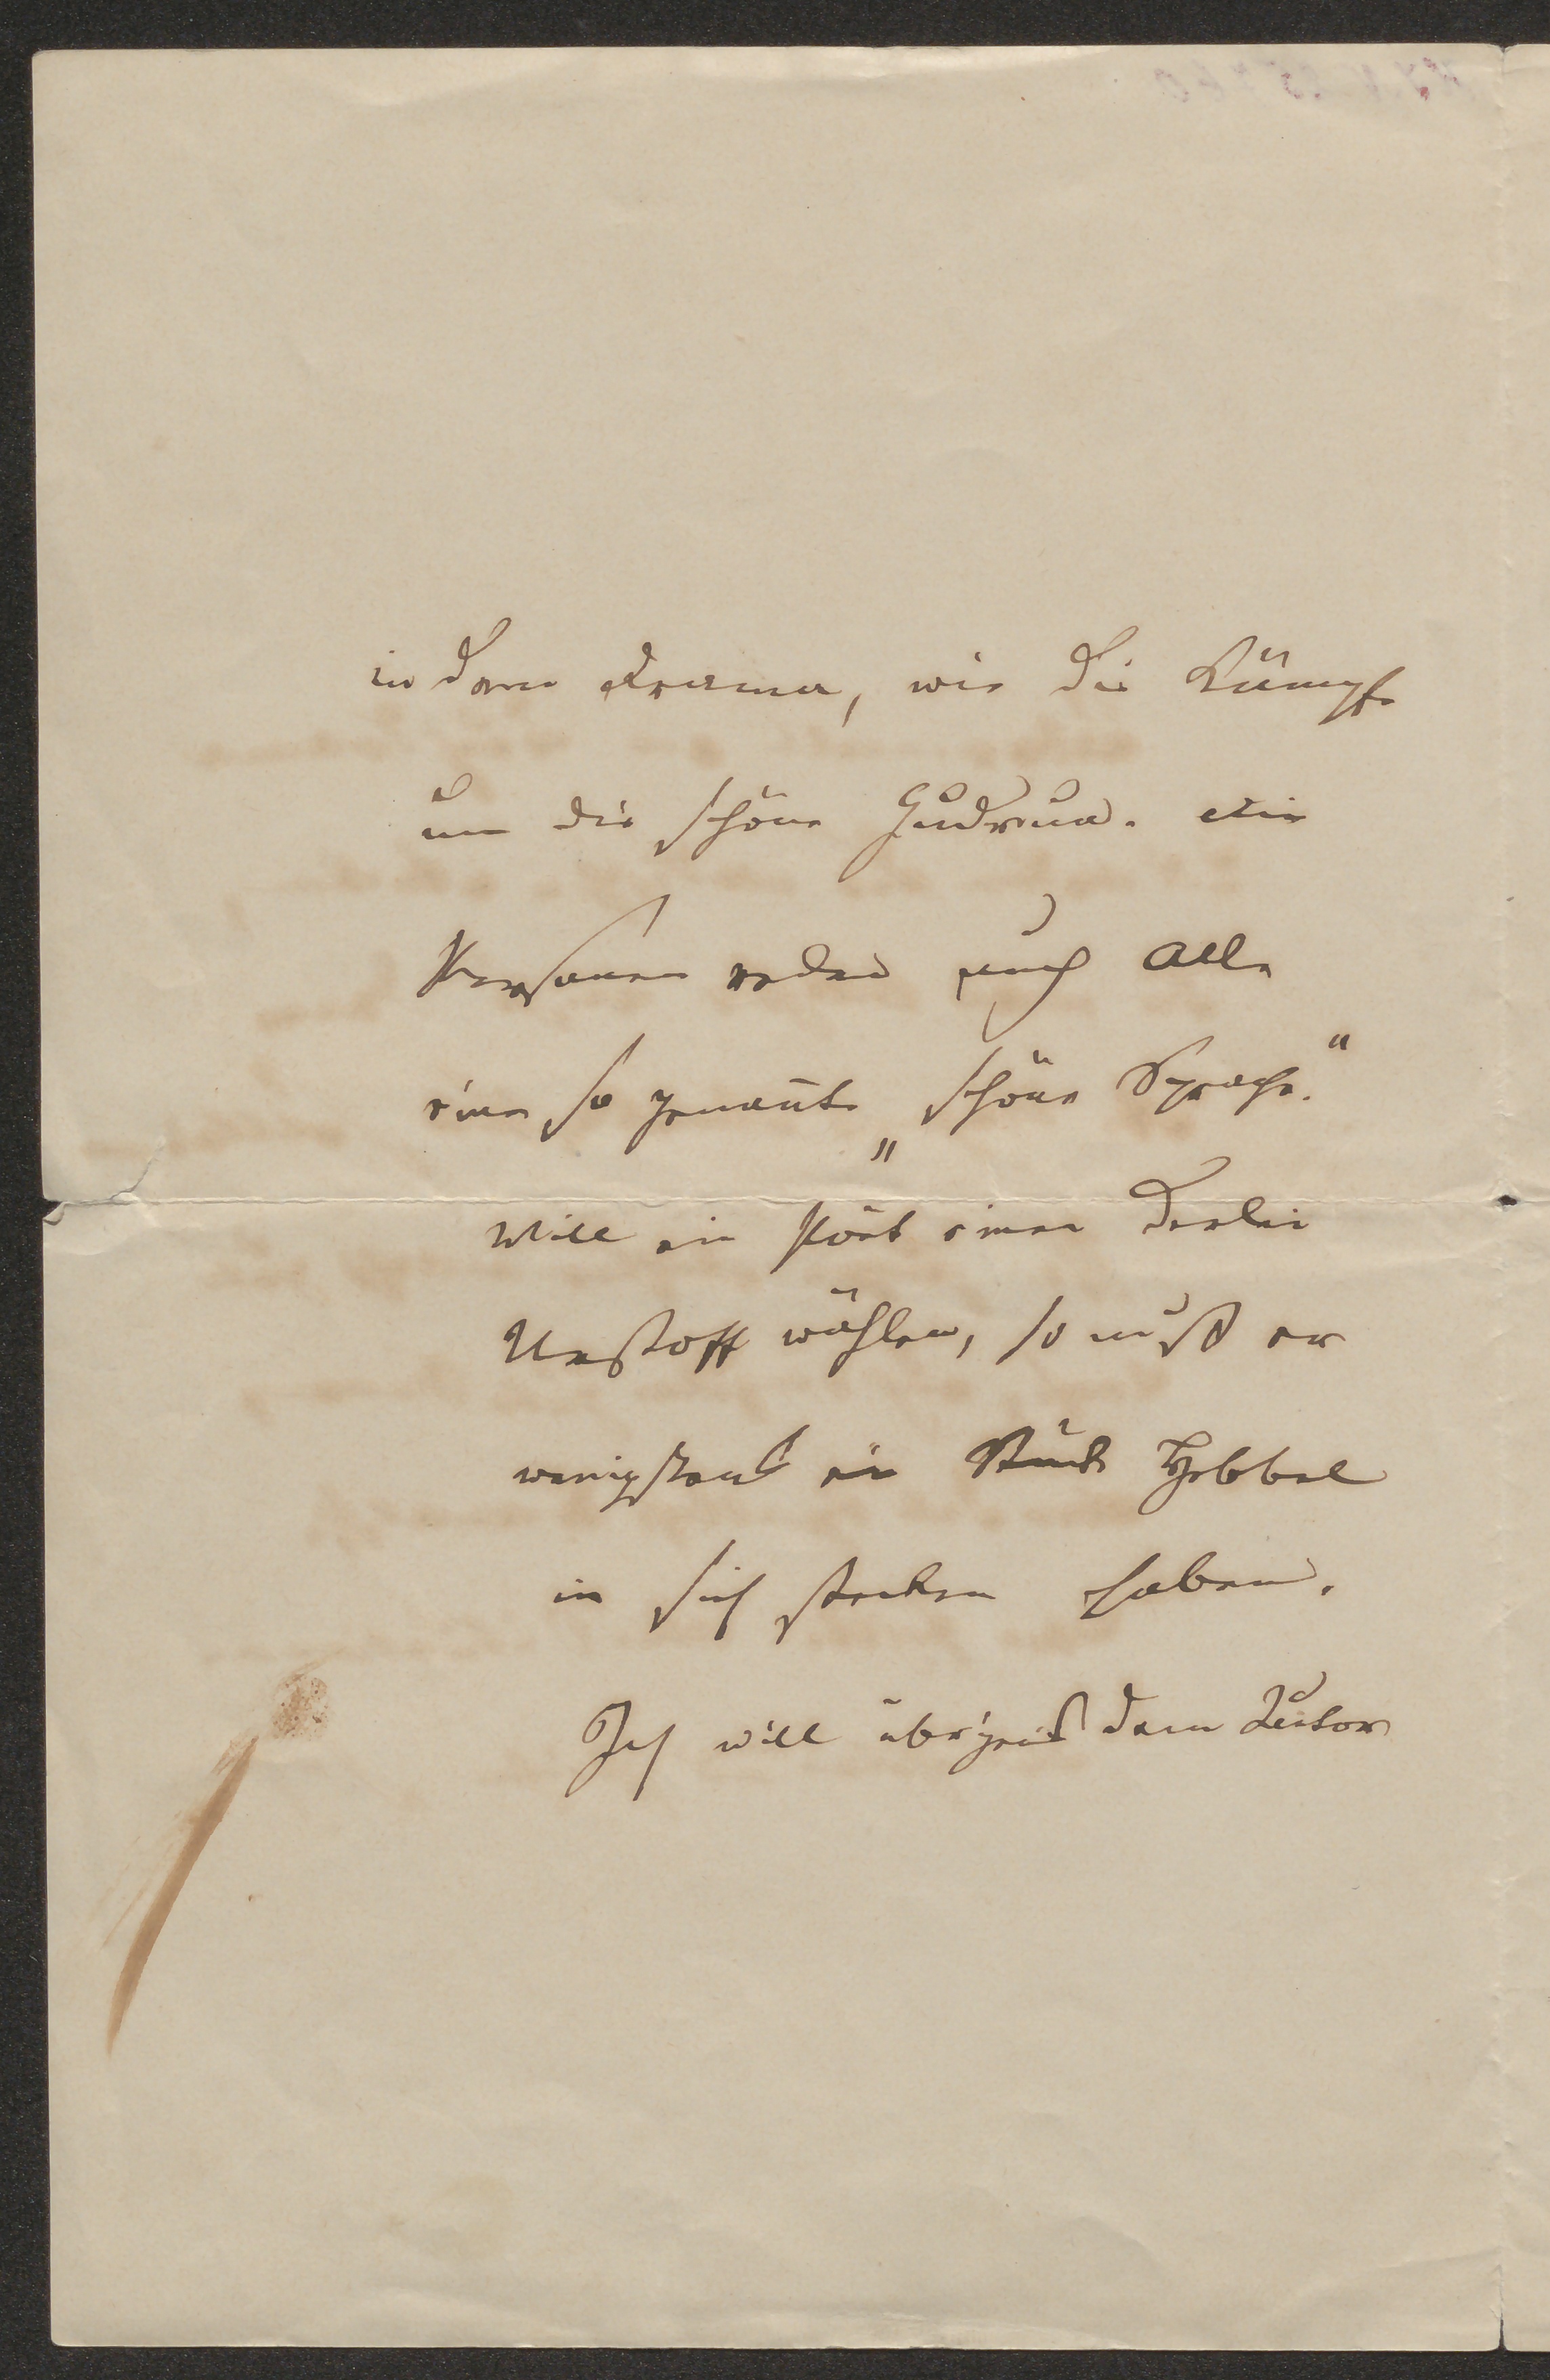 in dem Drama, wie die Kämpfe
um die schöne Gudrun. Die
Personen reden auch alle
eine so genan̅te „schöne Sprache."
Will ein Poet einen derlei
Urstoff wählen, so muß er
wenigstens ein Stück Hebbel
in sich stecken haben.
Ich will übrigens dem Autor